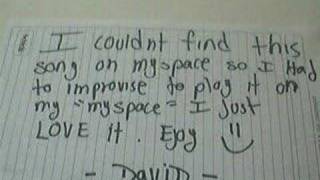 I couldnt find this
song on myspace so I Had
to improvise to play it on
my "myspace" I just
LOVE it. Ejoy
- DaviD -